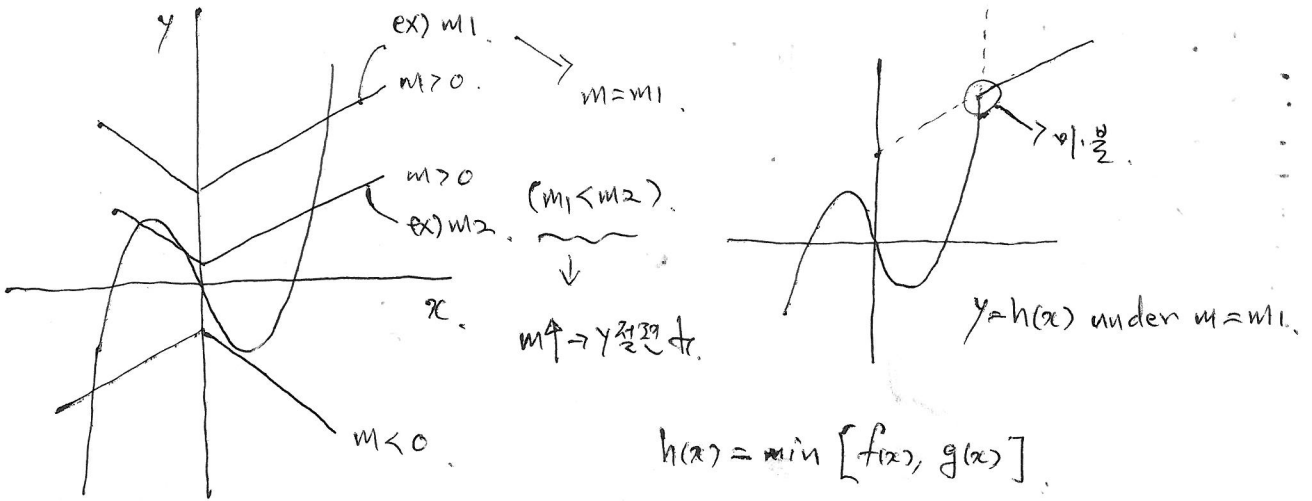 y
ex) m1.
m>0.
m=m1.
m>0
ex) m2.
(m1<m2).
x.
m↑→y절편↓.
m<0.
미.불.
y=h(x) under m=m1.
h(x)=min[f(x), g(x)].